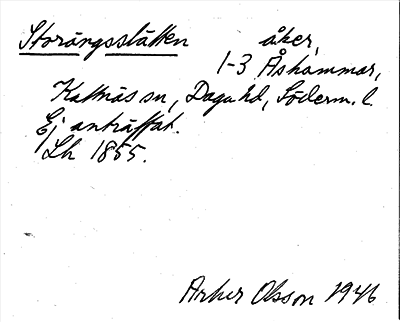 Storängsslätten åker,
1-3 Åshammar,
Kattnäs sn, Daga hd, Söderm. l.
Ej anträffat.
Lh 1855.
Arher Olsson 1946